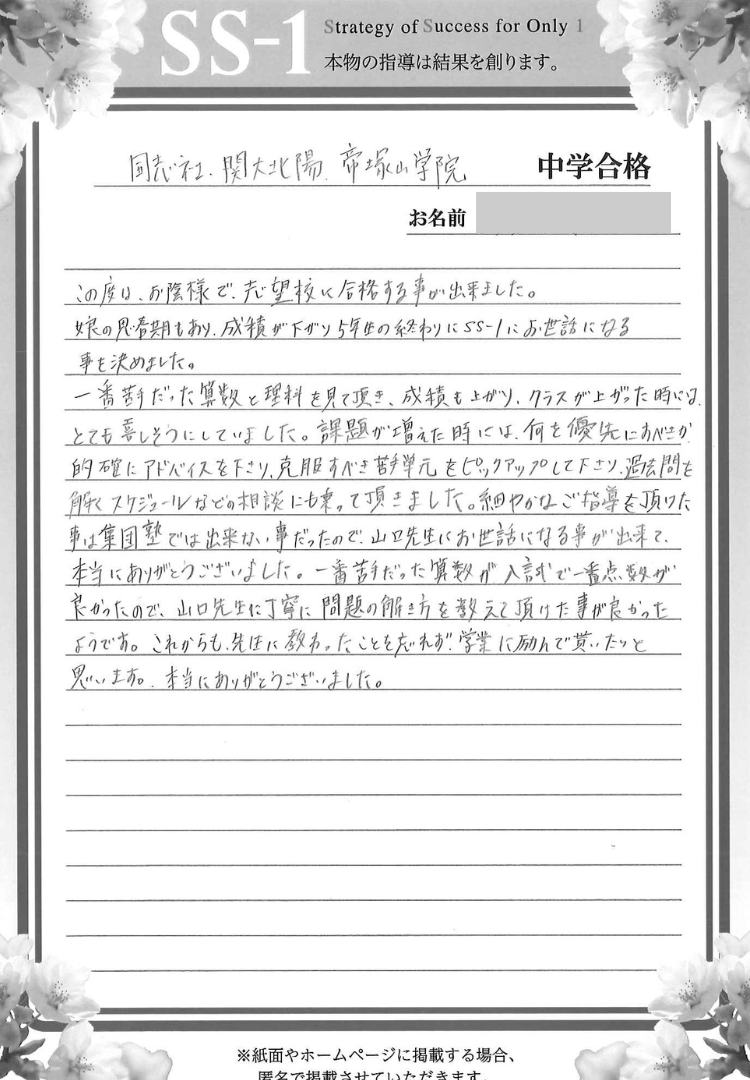 SS-1
Strategy of Success for Only 1
本物の指導は結果を創ります。
同志社、関大北陽、帝塚山学院 中学合格
お名前
この度は、お陰様で、志望校に合格する事が出来ました。
娘の思春期もあり、成績が下がり5年生の終わりにSS-1にお世話になる
事を決めました。
一番苦手だった算数と理科を見て頂き、成績も上がり、クラスが上がった時には、
とても喜しそうにしていました。課題が増えた時には、何を優先にすべきか
的確にアドバイスを下さり、克服すべき苦手単元をピックアップして下さり、過去問を
解くスケジュールなどの相談にも乗って頂きました。細やかなご指導を頂けた
事は集団塾では出来ない事だったので、山口先生にお世話になる事が出来て、
本当にありがとうございました。一番苦手だった算数が入試で一番点数が
良かったので、山口先生に丁寧に問題の解き方を教えて頂けた事が良かった
ようです。これからも、先生に教わったことを忘れず、学業に励んで貰いたいと
思います。本当にありがとうございました。
※紙面やホームページに掲載する場合、
匿名で掲載させていただきます。